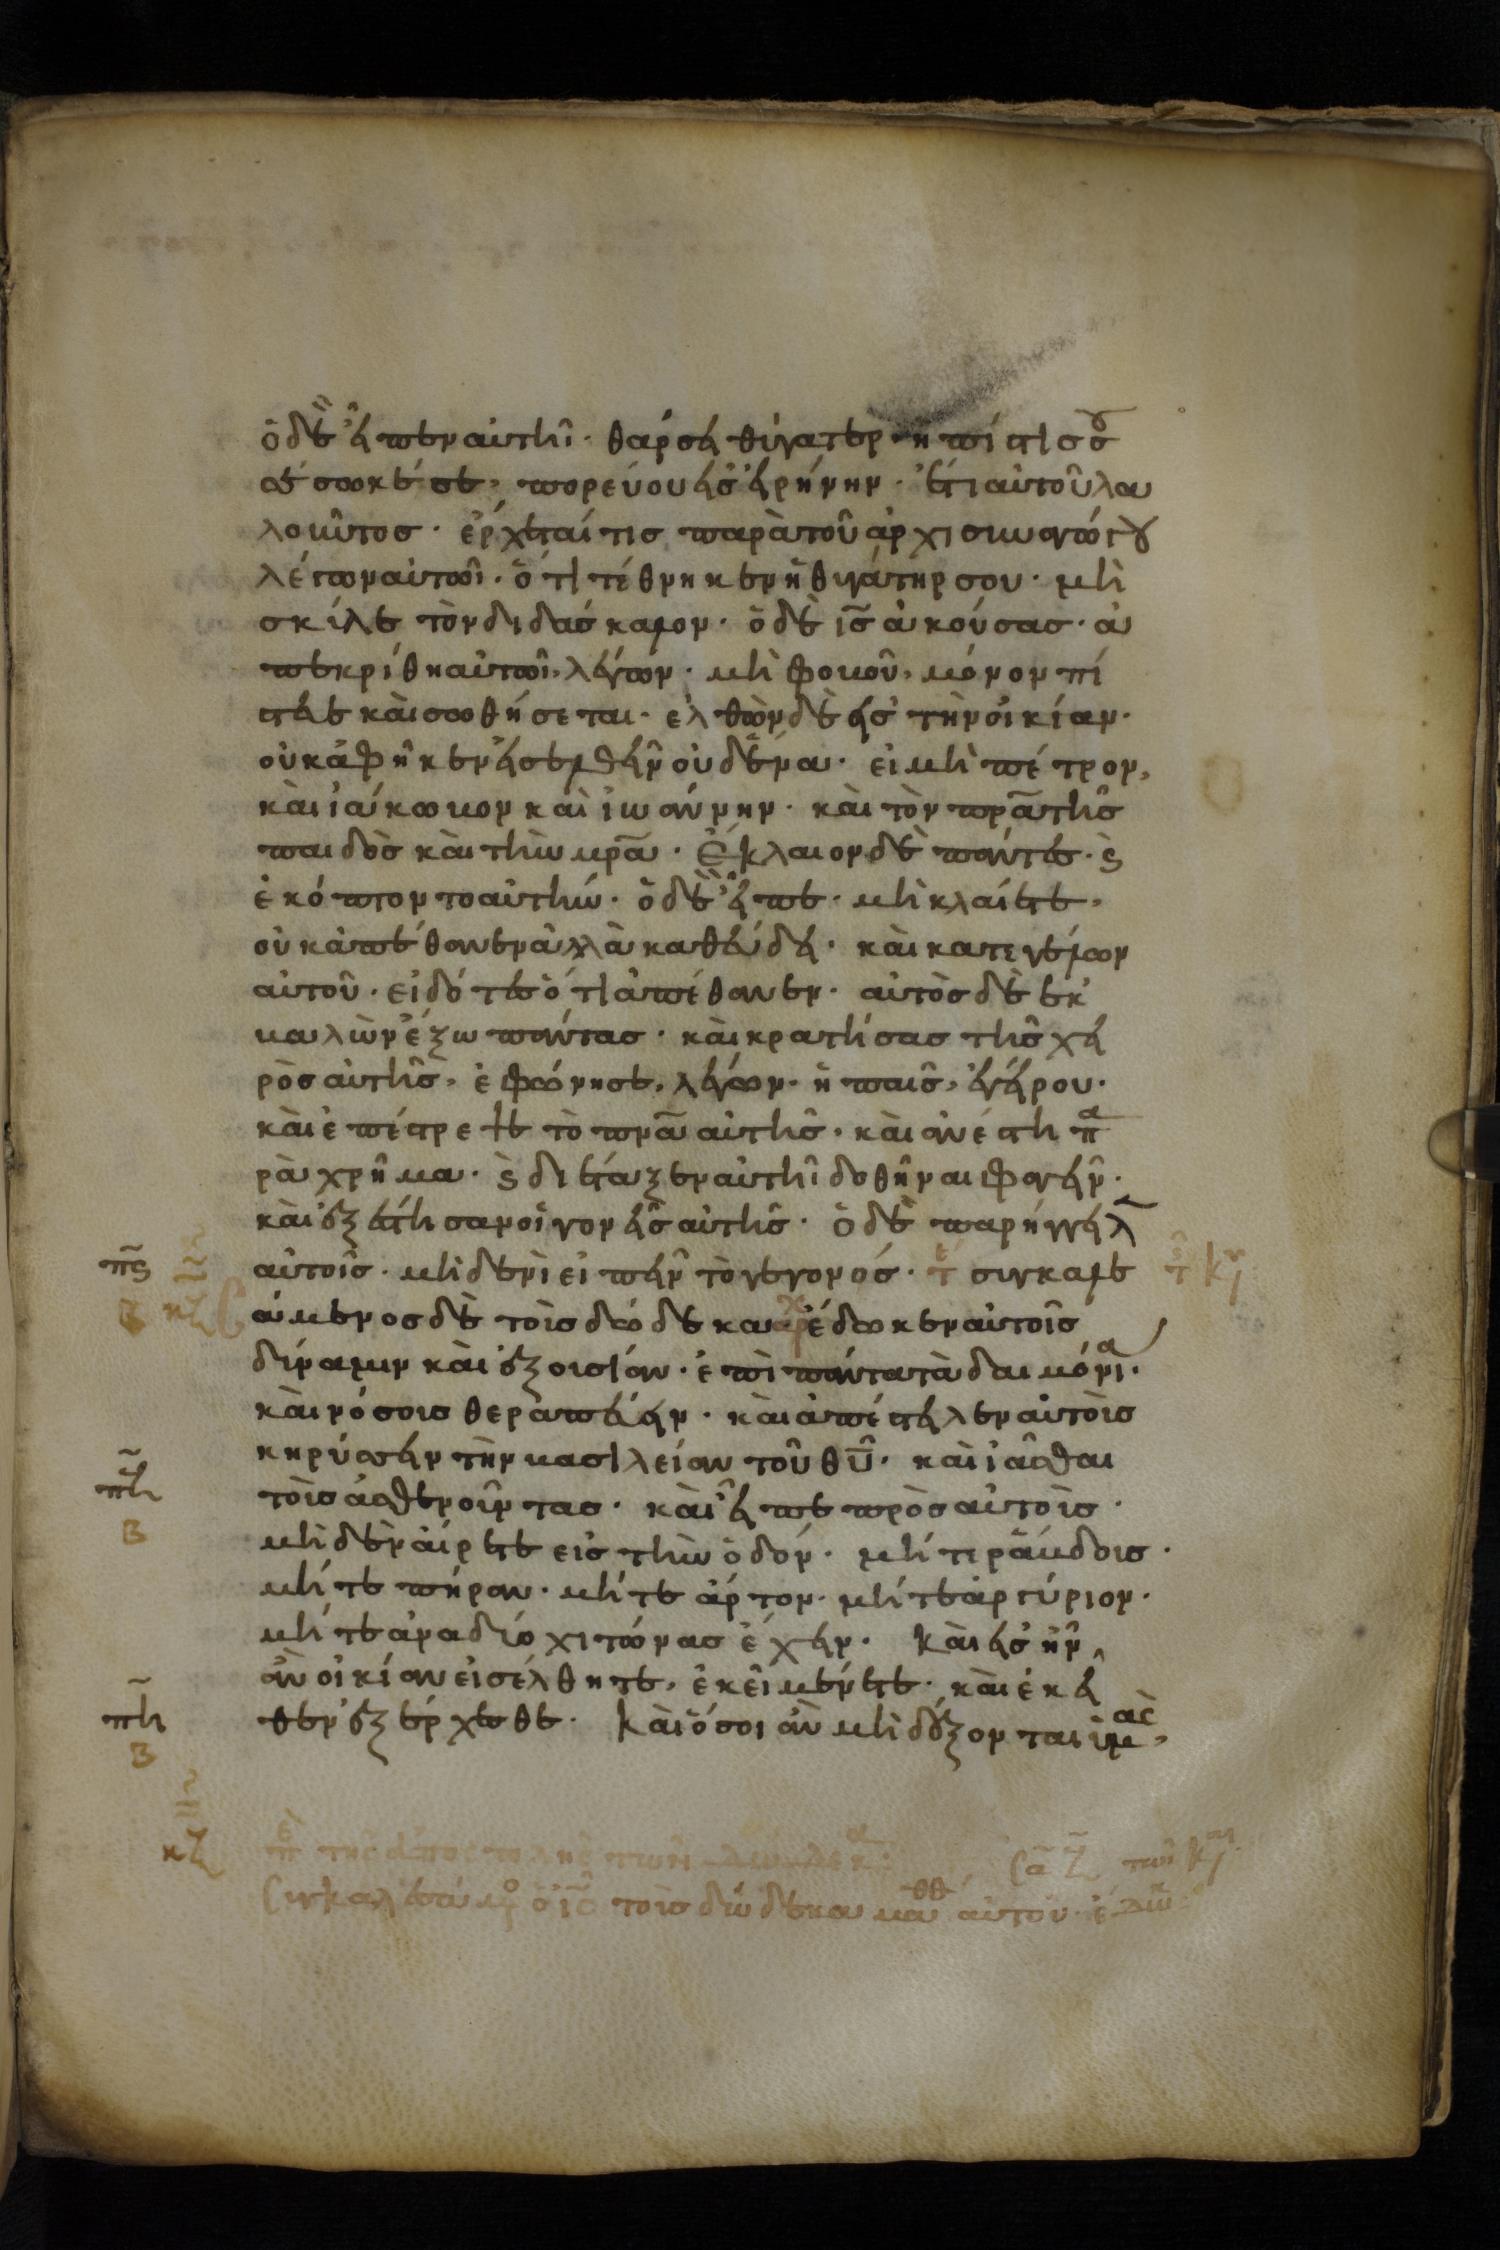 ὁ δὲ εἶπεν αὐτῆ· θάρσει θύγατερ· ἡ πίστις σου
σέσωκέ σε, πορεύου εἰς εἰρήνην· ἔτι αὐτοῦ λα
λοῦντος· ἔρχεταί τις παρὰ τοῦ ἀρχισυναγώγου
λέγων αὐτῶι· ὅτι τέθνηκεν ἡ θυγάτηρ σου· μὴ
σκύλε τὸν διδάσκαλον· ὁ δὲ ι̅ς̅ ἀκούσας· ἀ
πεκρίθη αὐτῶι, λέγων· μὴ φοβοῦ, μόνον πί
στευε καὶ σωθήσεται· ἐλθὼν δὲ εἰς τὴν οἰκίαν·
οὐκ ἀφῆκεν εἰσελθεῖν οὐδένα· εἰ μὴ πέτρον,
καὶ ἰάκωβον καὶ ἰωάννην· καὶ τὸν π̅ρ̅α̅ τῆς
παιδὸς καὶ τὴν μ̅ρ̅α̅· Ἔκλαιον δὲ πάντες· καὶ
ἐκόπτοντο αὐτήν· ὁ δὲ εἶπε· μὴ κλαίετε,
οὐκ ἀπέθανεν ἀλλὰ καθεύδει· καὶ κατεγέλων
αὐτοῦ· εἰδότες ὅτι ἀπέθανεν· αὐτὸς δὲ ἐκ
βαλὼν ἔξω πάντας· καὶ κρατήσας τῆς χει
ρὸς αὐτῆς, ἐφώνησε, λέγων· ἡ παῖς, ἐγείρου·
καὶ ἐπέστρεψε τὸ π̅ν̅α̅ αὐτῆς, καὶ ἀνέστη πα
ραχρῆμα· καὶ διέταξεν αὐτῆ δοθῆναι φαγεῖν·
καὶ ἐξέστησαν οἱ γονεῖς αὐτῆς· ὁ δὲ παρήγγειλ
αὐτοῖς· μηδενὶ εἰπεῖν τὸ γεγονός· τε συγκαλε
σάμενος δὲ τοὺς δώδεκα ἔδωκεν αὐτοῖς
δύναμιν καὶ ἐξουσίαν· ἐπὶ πάντα τὰ δαιμόνια·
καὶ νόσους θεραπεύειν· καὶ ἀπέστειλεν αὐτοὺς
κηρύσσειν τὴν βασιλείαν τοῦ θ̅υ̅· καὶ ἰᾶσθαι
τοὺς ἀσθενοῦντας· καὶ εἶπε πρὸς αὐτούς·
μηδὲν αἴρετε εἰς τὴν ὁδόν· μήτε ῥάβδους·
μήτε πήραν· μήτε ἄρτον· μήτε ἀργύριον·
μήτε ἀνὰ δύο χιτῶνας ἔχειν· Καὶ εἰς ἣν
ἂν οἰκίαν εἰσέλθητε, ἐκεῖ μένετε· καὶ ἐκεῖ
θεν ἐξέρχεσθε· Καὶ ὅσοι ἂν μὴ δέξονται ὑμᾶς,
π̅ς̅
κζ
β
π̅η̅
β
κζ
συγκαλεσάμενος ὁ ι̅ς̅ τοὺς δώδεκα μαθ αὐτοῦ ἔδω